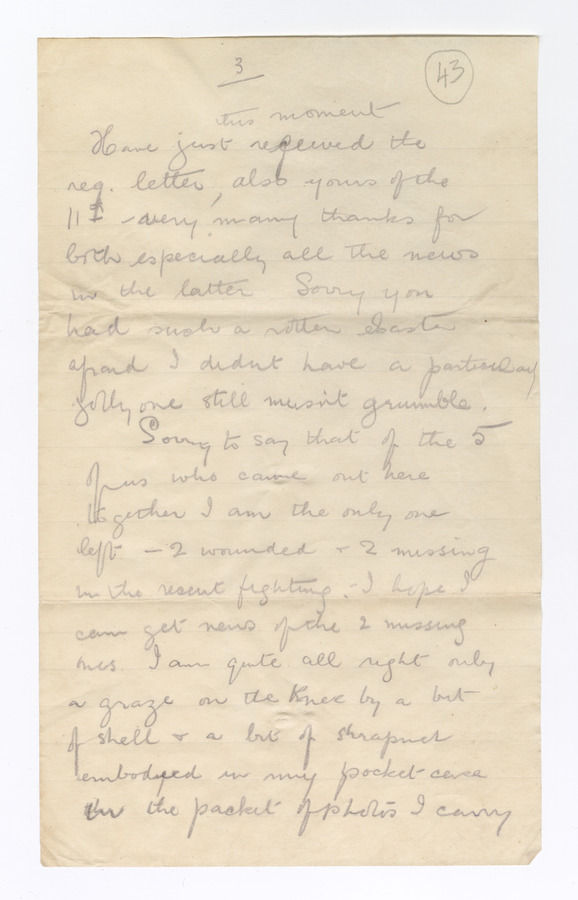 3
43
this moment
Have just received the
reg. letter, also yours of the
11th - very many thanks for
both especially all the news
in the latter Sorry you
had such a rotten Easter
afraid I didnt have a particularly
jolly one still musn't grumble.
Sorry to say that of the 5
of us who came out here
together I am the only one
left - 2 wounded + 2 missing
in the recent fighting. - I hope I
can get news of the 2 missing
ones. I am quite all right only
a graze on the Knee by a bit
of shell + a bit of shrapnel
embodyed in my pocket case
in the packet of photos I carry